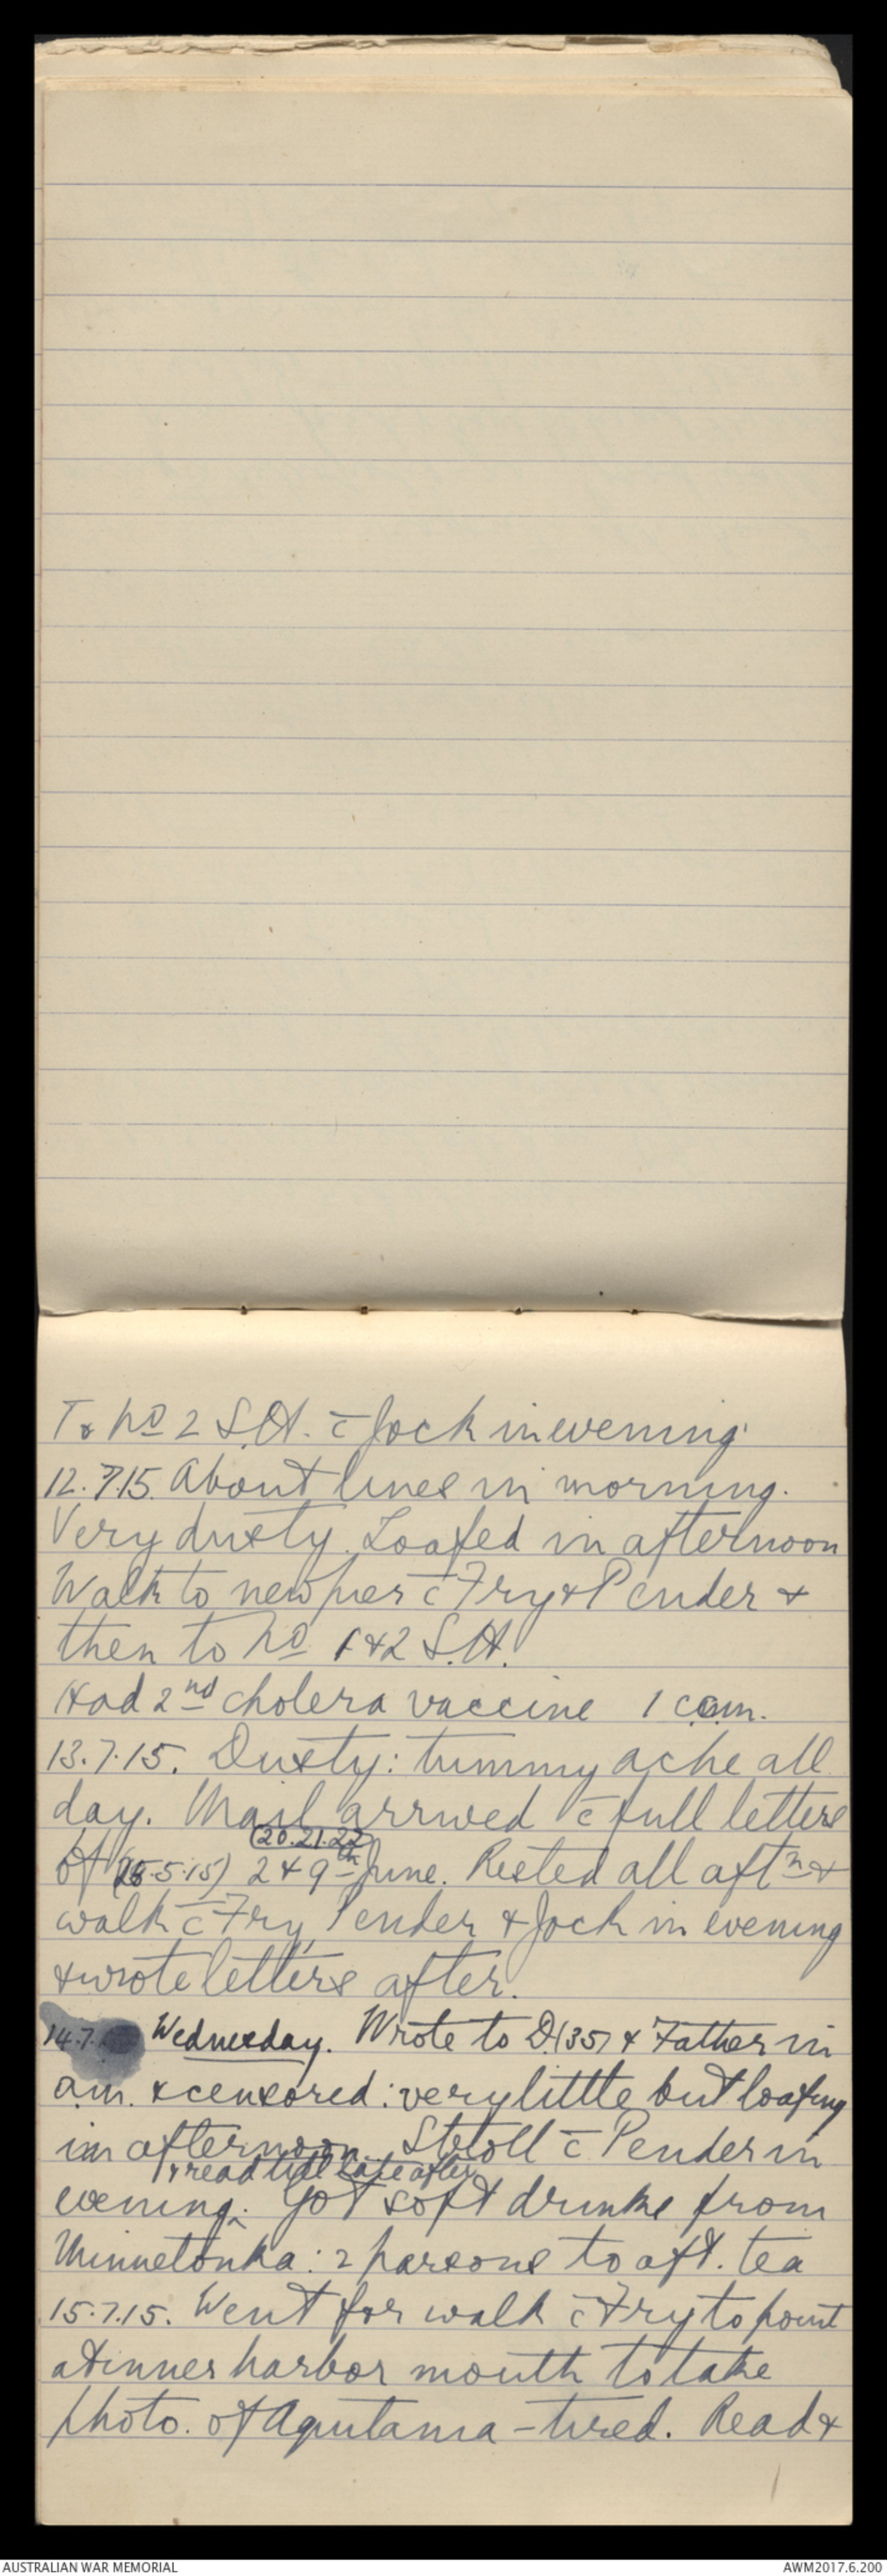 To No 2 S.H. c̄ Jock in evening.
12.7.15. About lines in morning.
Very dusty. Loafed in afternoon
Walk to new pier c̄ Fry & Pender &
then to No 1 & 2 S.H.
Had 2nd cholera vaccine 1 ccm.
13.7.15. Dusty: tummy ache all
day. Mail arrived c̄ full letters
(20.21.22
of (25.5.15) 2 & 9th June. Rested all aftn &
walk c̄ Fry, Pender & Jock in evening
& wrote letters after.
14.7. Wednesday. Wrote to D.(35) & Father in
a.m. & censored: very little but loafing
in afternoon. Stroll c̄ Pender in
& read till late after
evening. Got soft drinks from
Minnetonka: 2 parsons to aft. tea
15.7.15. Went for walk c̄ Fry to point
at inner harbor mouth to take
photo. of Aquitania - tired. Read &
AUSTRALIAN WAR MEMORIAL
AWM2017.6.200